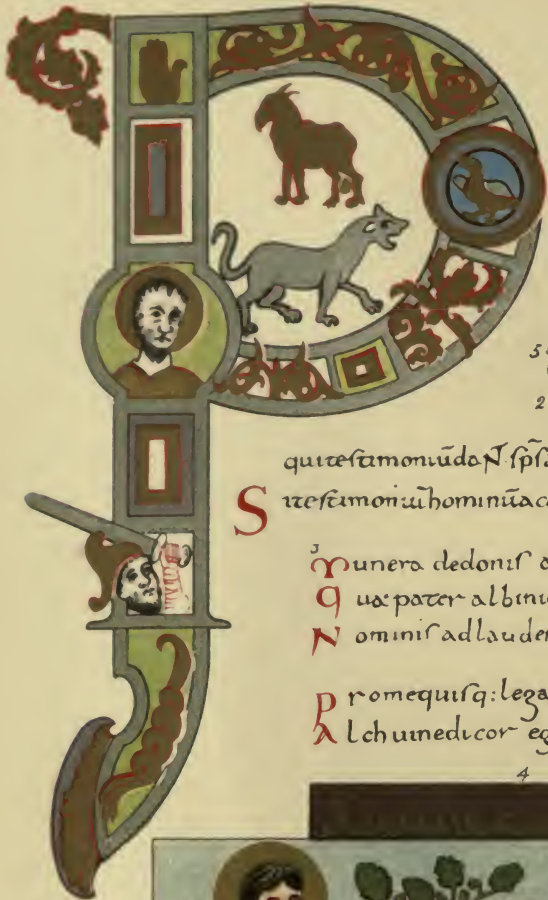 P
5
2
quiteſtimoniūdaN ſp̄ſa
Siteſtimoniūhominūac
3
Munera dedoniſ a
Quæ pater albinu
Nominiſ adlauden
Promequiſq: lega
Alchuinedicor eg
4